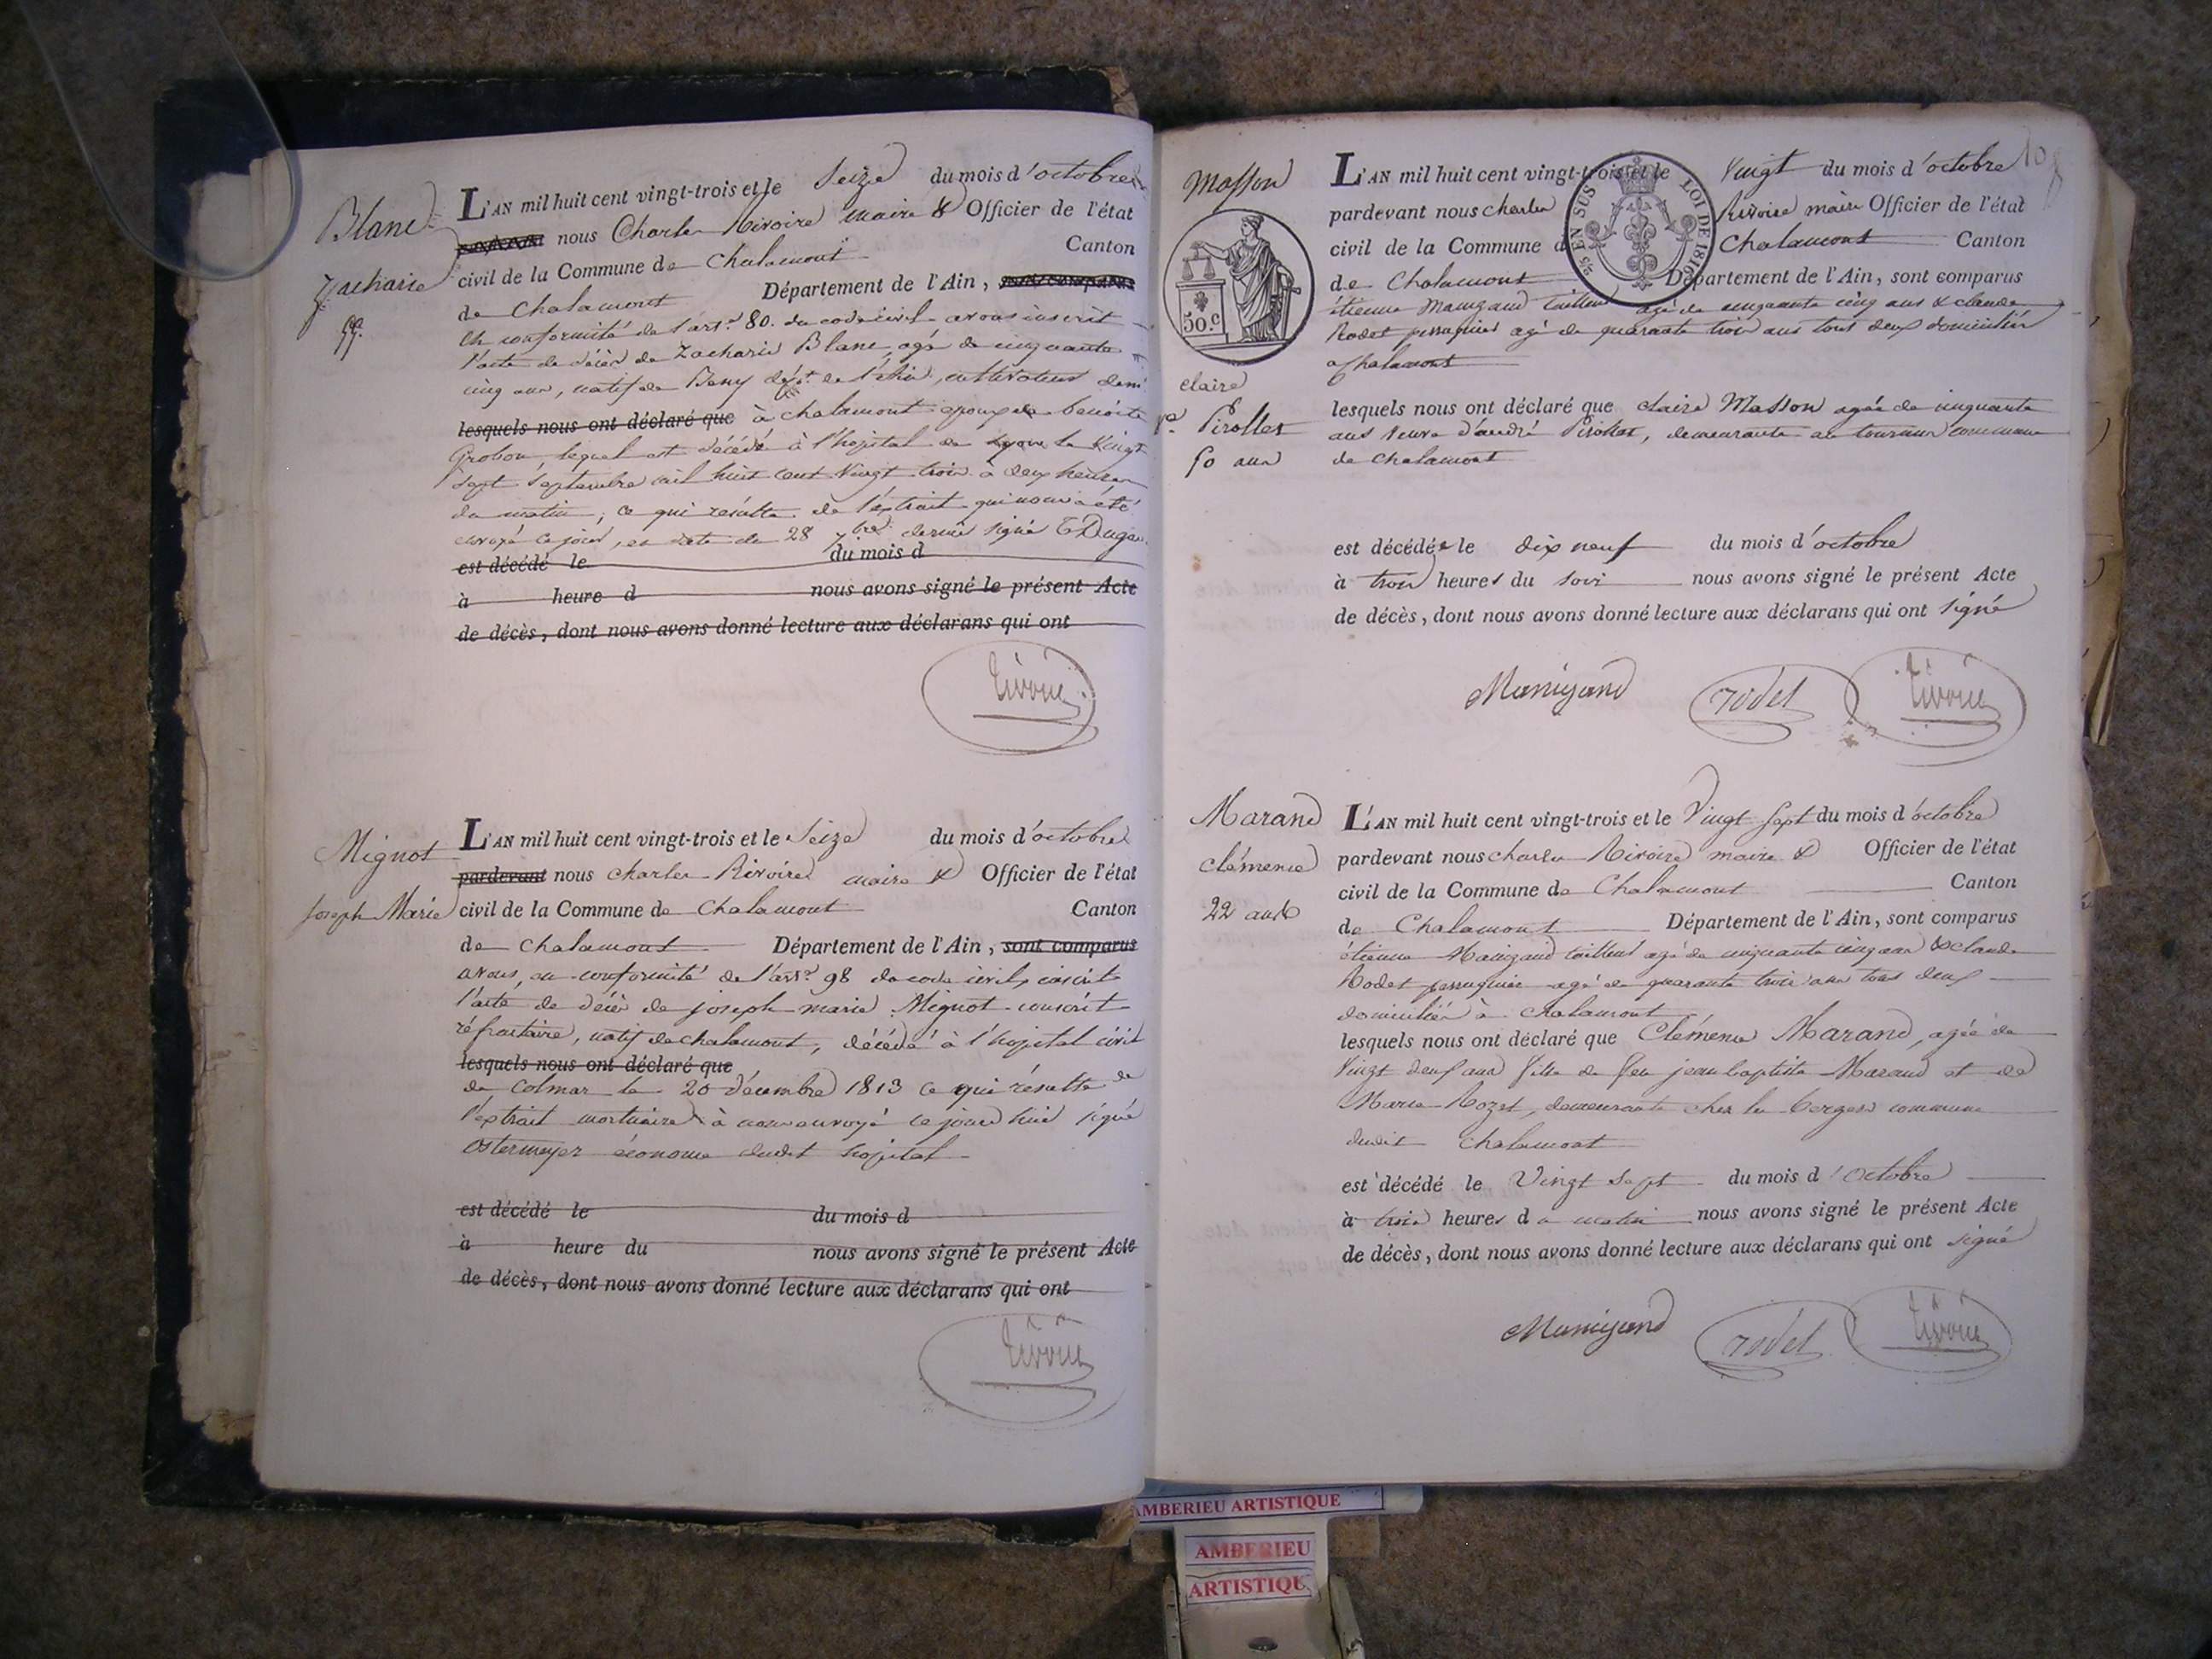 Blanc
Zacharie
55.
L'AN mil huit cent vingt-trois et le Seize du mois d'octobre
pardevant nous Charles Rivoire maire & Officier de l'état
civil de la Commune de Chalamont Canton
de Chalamont Département de l'Ain, sont comparus
En conformité de l'art. 80. du code civil avons inscrit
l'acte de décès de Zacharie Blanc, agé de cinquante
cinq ans, natif de Beny dépt. de l'Ain, cultivateur dem.
lesquels nous ont déclaré que à chalamont epoux de benoite
Grobon, lequel est décédé à l'hopital de Lyon le vingt
sept septembre mil huit cent vingt trois à deux heures
du matin, ce qui résulte de l'extrait qui nous a été
envoyé ce jour, en date du 28 7bre dernier signé
est décédé le du mois d
à heure d nous avons signé le présent Acte
de décès, dont nous avons donné lecture aux déclarans qui ont
Rivoire
Mignot
Joseph Marie
L'AN mil huit cent vingt-trois et le Seize du mois d'octobre
pardevant nous charles Rivoire maire & Officier de l'état
civil de la Commune de Chalamont Canton
de chalamont Département de l'Ain, sont comparus
avons, en conformité de l'art. 98 du code civil, inscrit
l'acte de décès de joseph marie Mignot conscrit
réfractaire, natif de chalamont, décédé à l'hopital civil
lesquels nous ont déclaré que
de Colmar le 20 décembre 1813 ce qui résulte de
l'extrait mortuaire à nous envoyé ce jourd'hui signé
Ostermeyer économe dudit hopital
est décédé le du mois d
à heure du nous avons signé le présent Acte
de décès, dont nous avons donné lecture aux déclarans qui ont
Rivoire
Masson
50.c
claire
ve. Pirollet
50 ans
5/c EN SUS LOI DE 1816
L'AN mil huit cent vingt-trois et le Vingt du mois d'octobre
pardevant nous charles Rivoire maire Officier de l'état
civil de la Commune de Chalamont Canton
de Chalamont Département de l'Ain, sont comparus
étienne Manigand tailleur agé de cinquante cinq ans & claude
Rodet perruquier agé de quarante trois ans tous deux domiciliés
a chalamont
lesquels nous ont déclaré que claire Masson agée de cinquante
ans veuve d'andré Pirollet, demeurante au commune
de chalamont
est décédée le dix neuf du mois d'octobre
à trois heures du soir nous avons signé le présent Acte
de décès, dont nous avons donné lecture aux déclarans qui ont signé
Manigand rodet Rivoire
Marand
clémence
22 ans
L'AN mil huit cent vingt-trois et le Vingt sept du mois d'octobre
pardevant nous charles Rivoire maire & Officier de l'état
civil de la Commune de Chalamont Canton
de Chalamont Département de l'Ain, sont comparus
étienne Manigand tailleur agé de cinquante cinq ans & claude
Rodet perruquier agé de quarante trois ans tous deux
domiciliés à chalamont
lesquels nous ont déclaré que Clémence Marand, agée de
vingt deux ans fille de feu jean baptiste Marand et de
Marie Rozet, demeurante chez les commune
dudit chalamont
est décédé le Vingt sept du mois d'octobre
à trois heures du matin nous avons signé le présent Acte
de décès, dont nous avons donné lecture aux déclarans qui ont signé
Manigand rodet Rivoire
AMBERIEU ARTISTIQUE
AMBERIEU
ARTISTIQU